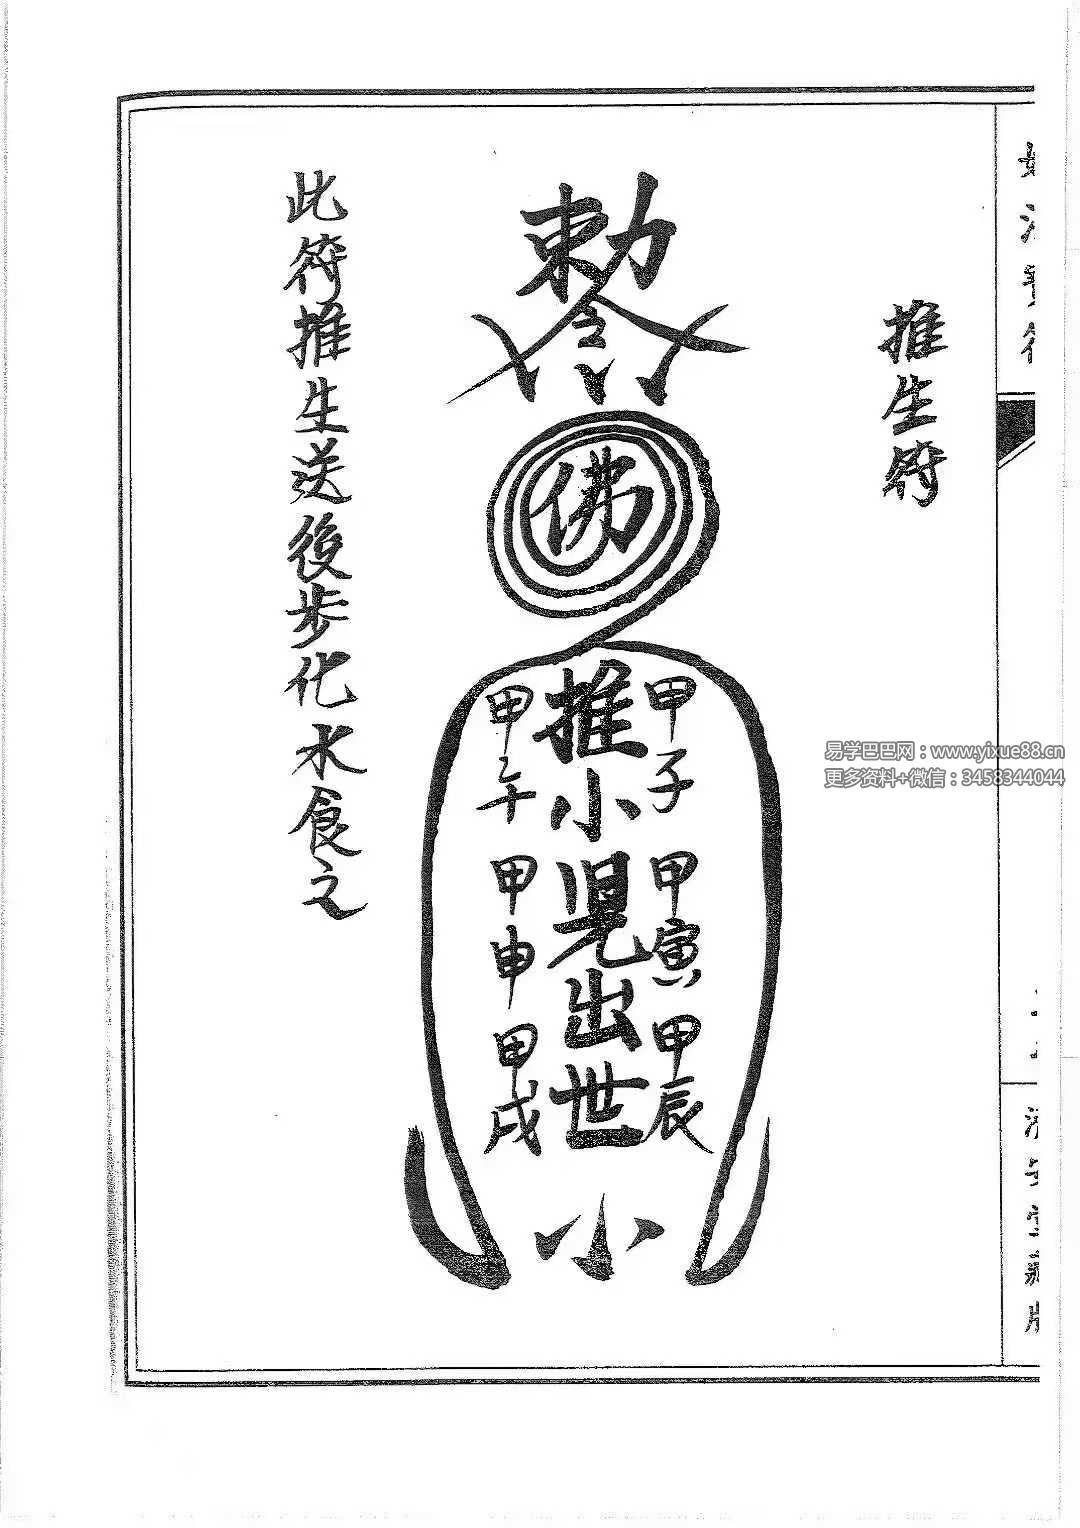 推生符
勅令
佛
甲子甲寅甲辰
推小児出世
甲午甲申甲戌
小
此符推生送後步化水食之
易学巴巴网：www.yixue88.cn
更多资料+微信：3458344044